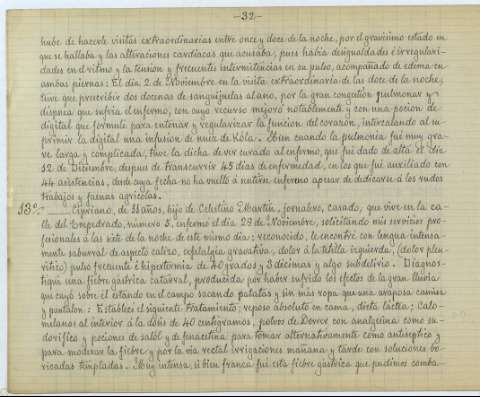 -32-
hube de hacerle visitas extraordinarias entre once y doce de la noche, por el gravísimo estado en
que se hallaba y las alteraciones cardíacas que acusaba, pues había desigualdades é irregulari-
dades en el ritmo y la tension y frecuentes intermitencias en su pulso, acompañado de edema en
ambas piernas: El dia 2 de Noviembre en la visita extraordinaria de las doce de la noche,
tuve que prescribir dos docenas de sanguijuelas al ano, por la gran congestion pulmonar y
dispnea que sufría el enfermo, con cuyo recurso mejoró notablemente y con una pocion de
digital que formulé para entonar y regularizar la funcion del corazón, intercalando al su-
primir la digital una infusion de nuez de Kola. Aun cuando la pulmonía fué muy gra-
ve larga y complicada, tuve la dicha de ver curado al enfermo, que fué dado de alta el dia
12 de Diciembre, despues de transcurrir 45 dias de enfermedad, en los que fué auxiliado con
44 asistencias, desde cuya fecha no ha vuelto á sentirse enfermo apesar de dedicarse á los rudos
trabajos y faenas agrícolas.
13º- Cipriano, de 31 años, hijo de Celestino Martín, jornalero, casado, que vive en la ca-
lle del Empedrado, número 5, enfermó el dia 29 de Noviembre, solicitando mis servicios pro-
fesionales á las siete de la noche de este mismo dia: reconocido, le encontré con lengua intensa-
mente saburral de aspecto calizo, cefalalgia gravativa, dolor á la tetilla izquierda, (dolor pleu-
rítico) pulso frecuente é hipertermia de 40 grados y 3 décimas y algo subdelirio. Diagnos-
tiqué una fiebre gástrica catarral, producida por haber sufrido los efectos de la gran lluvia
que cayó sobre él estando en el campo sacando patatas y sin mas ropa que una andrajosa camisa
y pantalon: Establecí el siguiente tratamiento; reposo absoluto en cama, dieta láctea; Calo-
melanos al interior á la dósis de 40 centígramos, polvos de Dower con analgesina como su-
dorífico y pociones de salól y de fenacetina para tomar alternativamente como antiséptico y
para moderar la fiebre y por la vía rectal irrigaciones mañana y tarde con soluciones bo-
ricadas templadas. Muy intensa, si bien franca fué esta fiebre gástrica que pudimos comba-